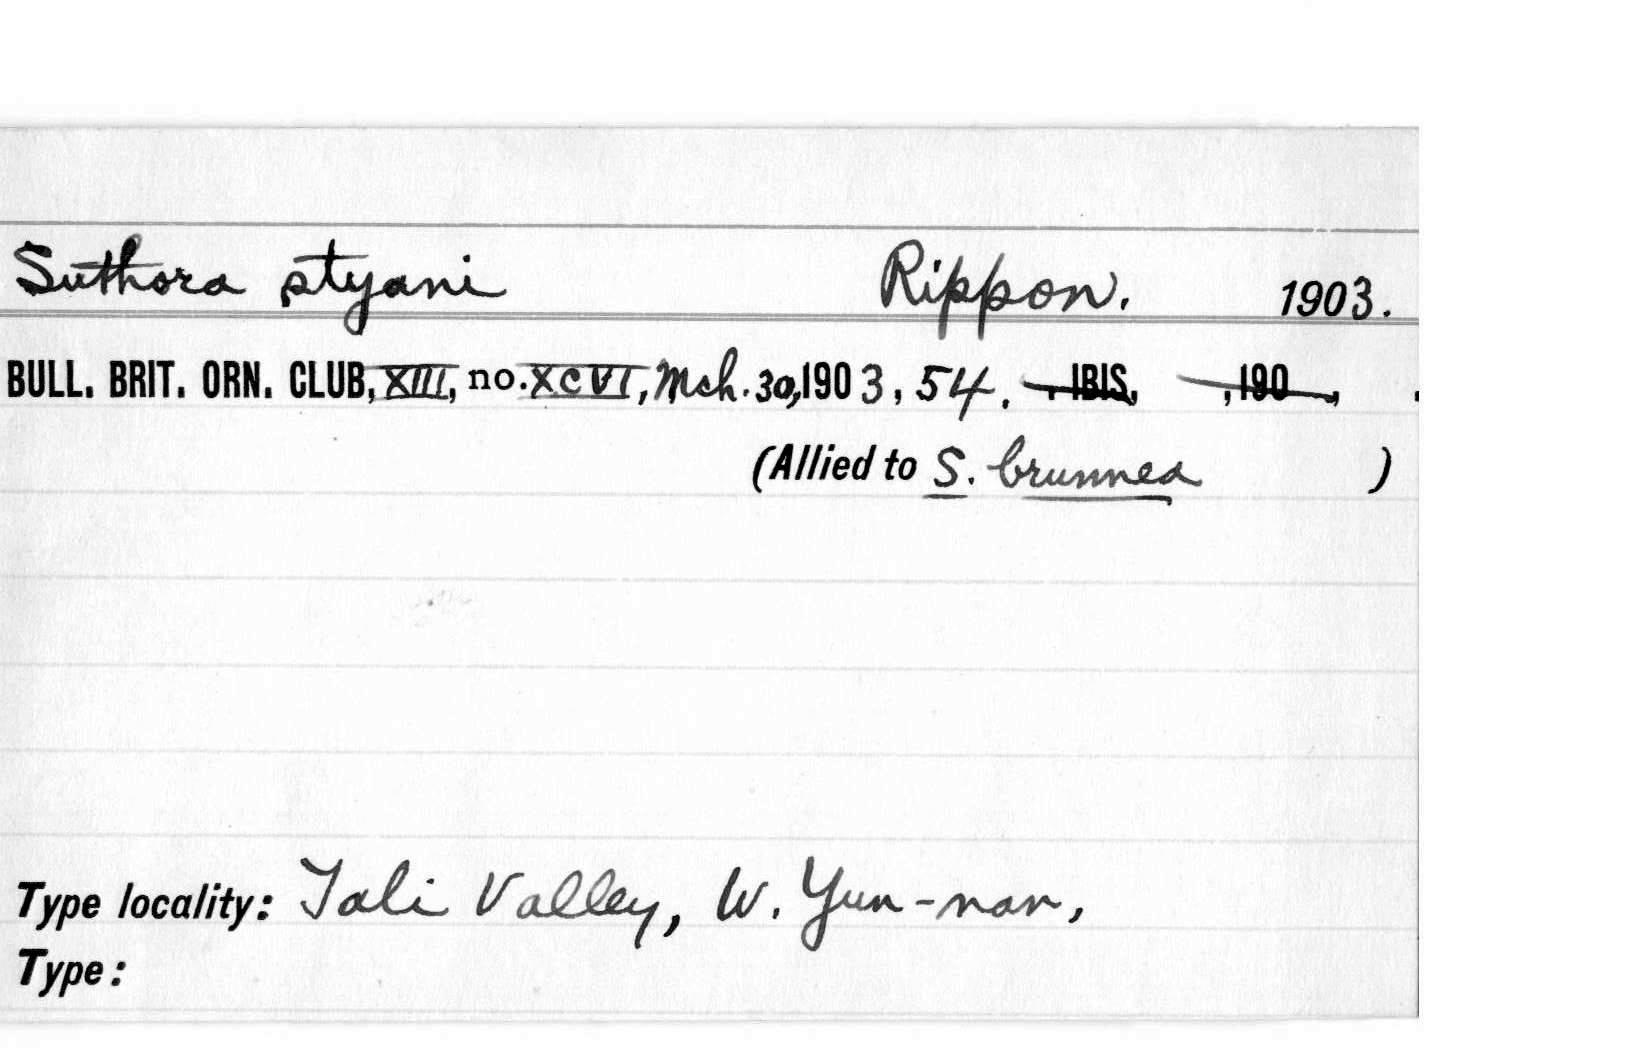 Suthora styani Rippon. 1903.
BULL. BRIT. ORN. CLUB, XIII, no. XCVI, Mch. 30, 1903, 54. . IBIS, , 190 , .
(Allied to S. brunnea )
Type locality: Tali Valley, W. Yun-nan,
Type: